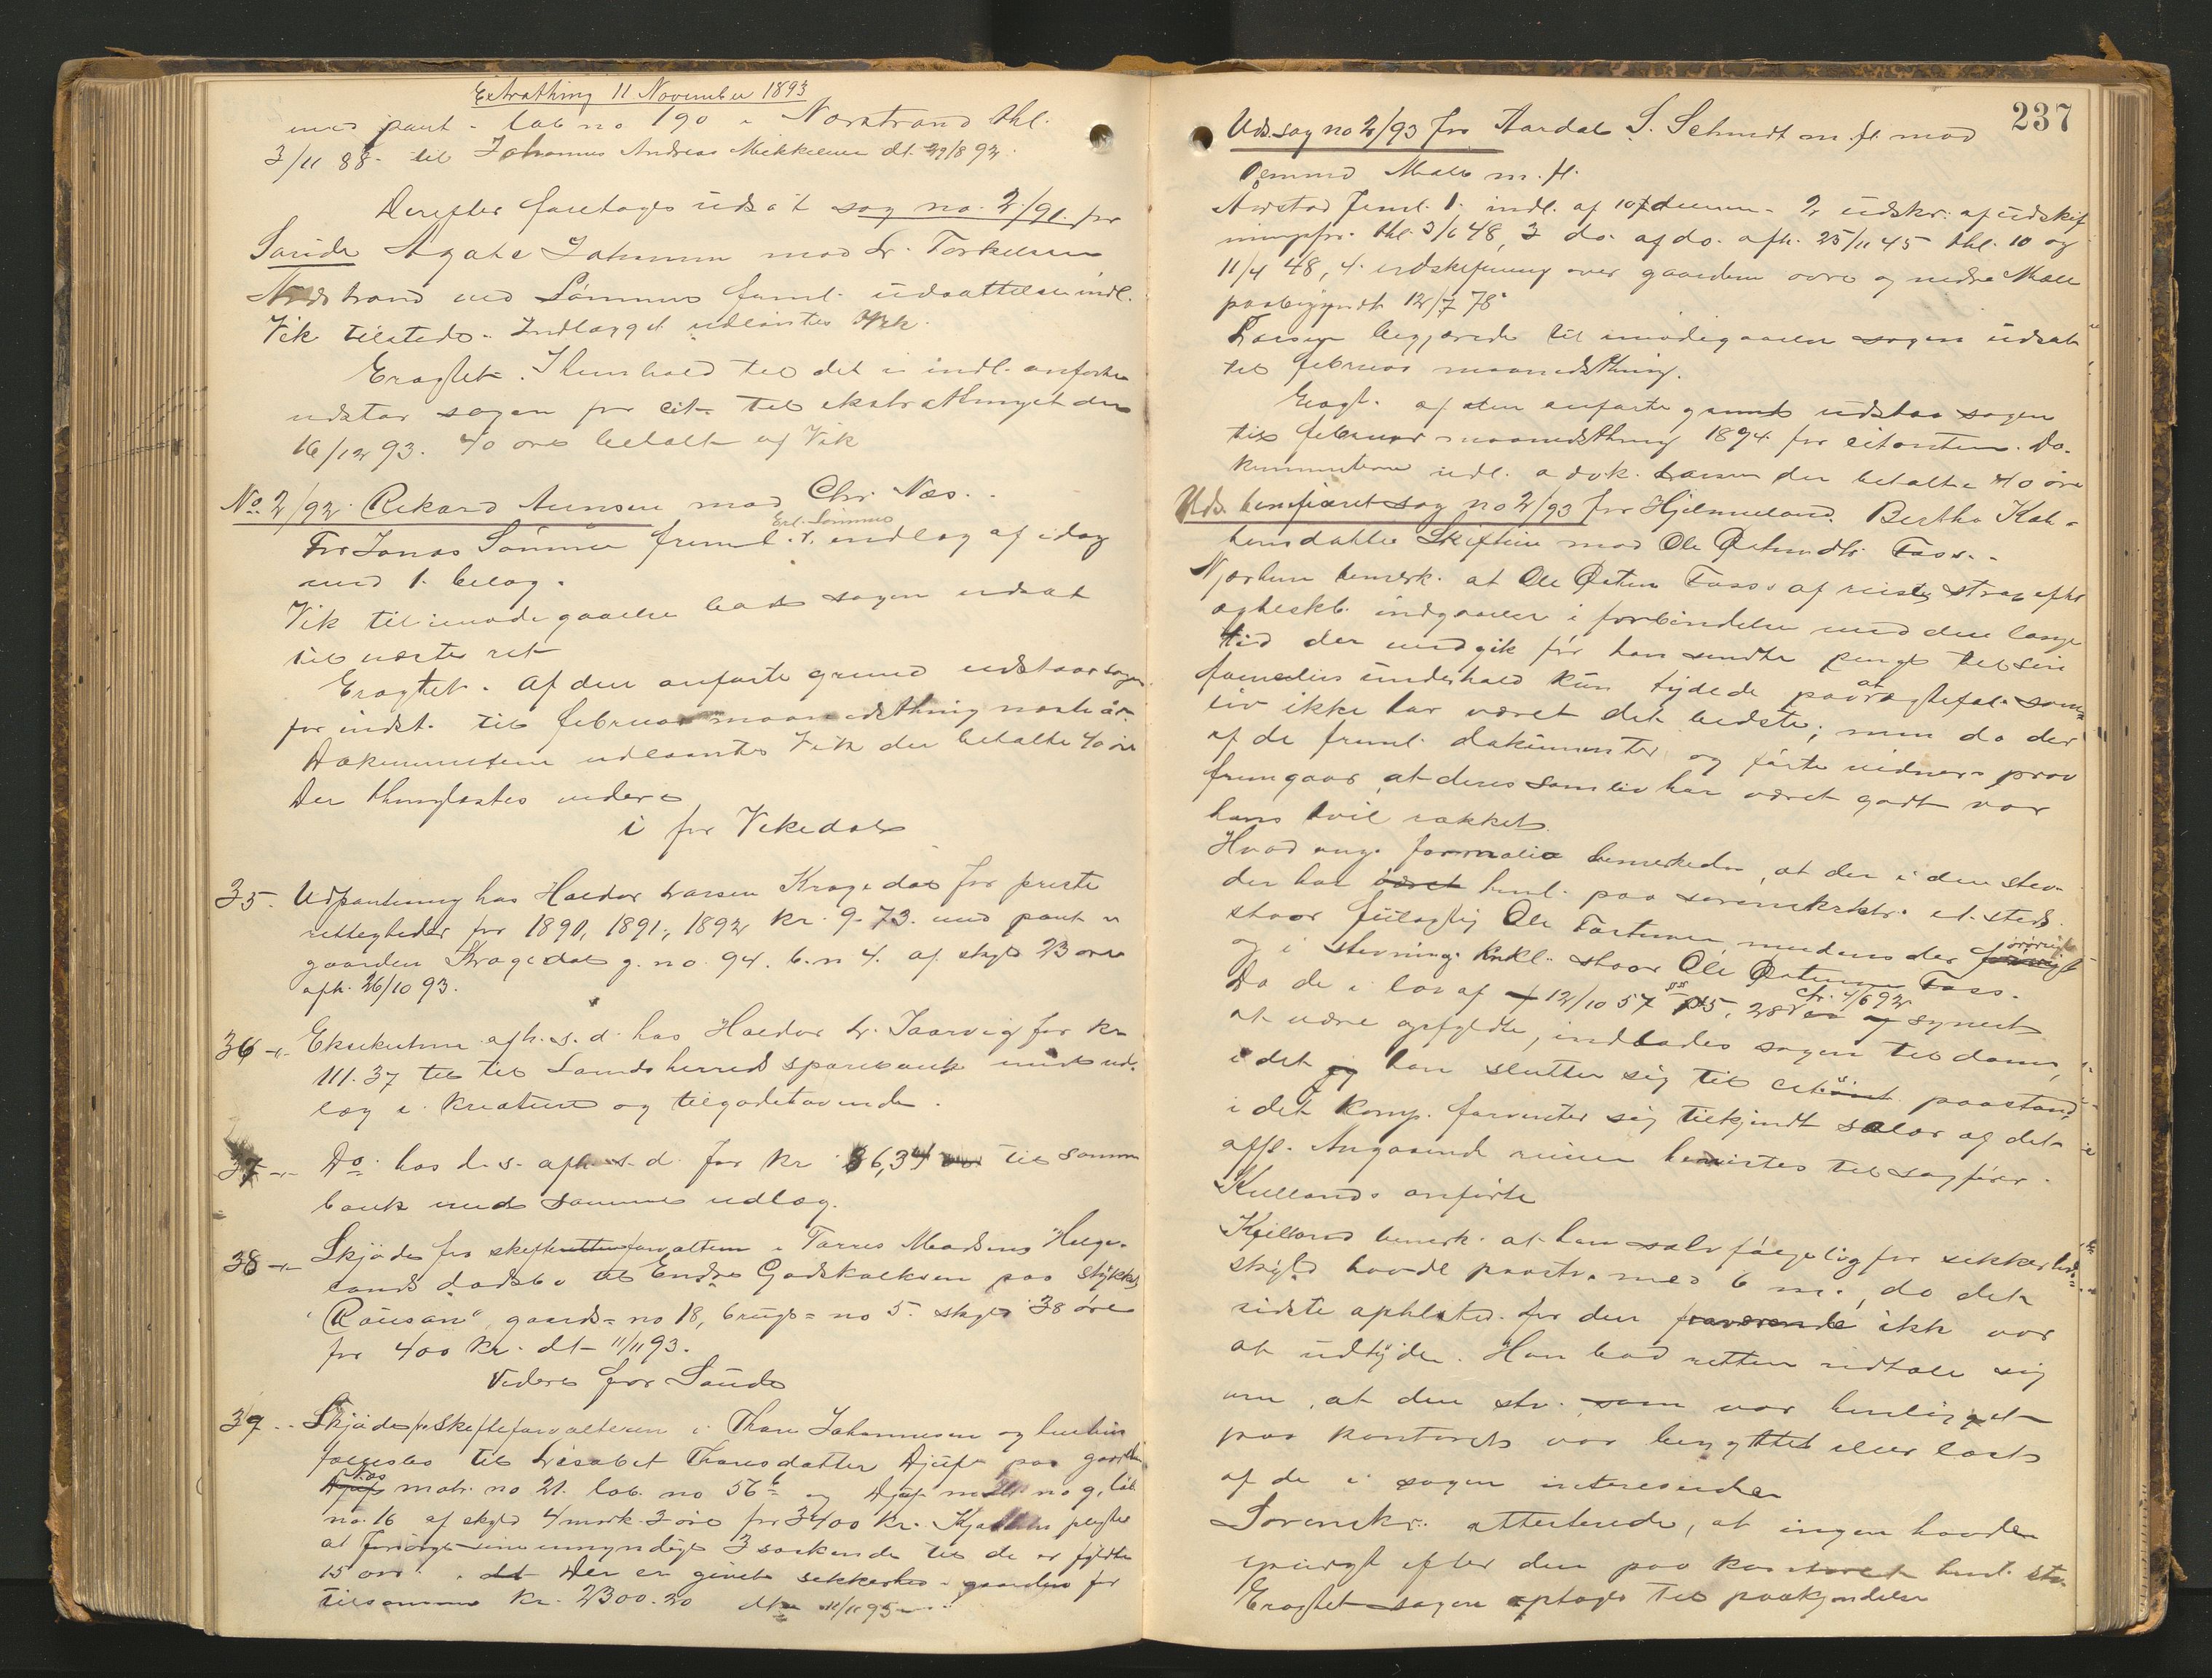 Extrathing 11 November 1893
med pant i lob no 190 i Norstrand thl.
3/11 88 til Johannes Andreas Mikkelsen dt. 29/8 92.
Derefter foretoges udsat sag no. 2/91 for
Saude Agate Johnsen mod L. Torkelsen
Nedstrand ved Sömme freml. udsættelse indl.
Vik tilstede. Indlægget udlaantes Vik.
Eragtet. I henhold til det i indl. anførte
udstaar sagen for cit. til ekstrathinget den
16/12 93. 40 øre betalt af Vik
No. 2/92. Rikard Aunsen mod Chr. Næs.
Erl. Sömmes
For Jonas Sömme freml. r. indlæg af idag
med 1 bilag.
Vik til imødegaaelse bad sagen udsat
til næste ret
Eragtet. Af den anførte grund udstaar sagen
for indst. til februar maanedsthing næste år.
Dokumenterne udlaantes Vik der betalte 40 øre
Der thinglæstes videre
i for Vikedal
35. Udpantning hos Haldor Larsen Kragedal for preste
rettigheder for 1890, 1891, 1892 kr. 9.73. med pant i
gaarden Kragedal g. no. 94. b. n 4. af skyld 23 øre
afh. 26/10 93.
36 -"- Eksekution afh. s. d. hos Haldor L. Saarvig for kr
111.37 til Søndhered sparebank med ud-
læg i kreature og tilgodehavende.
37 -"- Do. hos d. s. afh s. d. for kr. 36,34 til samme
bank med samme udlæg.
38 -"- Skjöde fra skifteretten forvalteren i Tarres Madsens Helge-
lands dødsbo til Endre Godskalksen paa stykket
"Rousan" gaards-no 18, brugs-no 5. skyld 38 öre
for 400 kr. dt. 11/11 93.
Videre for Saude
39 -"- Skjöde fra Skifteforvalteren i Thore Johannesen og hustrus
fællesbo til Lisabet Thoresdatter Djuf paa gaarden
Næs
Djuf matr. no 21. lob. no 56b og Djuf matr no 9, löb
no. 16 af skyld 4 mark 3 öre for 3400 kr. Kjøberen pligter
at forsörge sine umyndige 3 søskende til de er fyldte
15 aar. dt Der er givet sikkerhed i gaarden for
tilsammen kr. 2300.20 dt 11/11 93
237
Uds. sag no 2/93 for Aardal S. Schmidt m. fl. mod
Ömund Mæle m. fl.
Aarstad freml. 1. indl. af 10 ds. 2 udskr. af udskif
ningsfor. thl. 3/6 48, 3 do. af do. afh. 25/11 45 thl. 10 og
11/4 48, 4. udskiftning over gaarden øvre og nedre Mæle
paabegyndt 12/7 78.
Larsen begjærede til imødegaaelse sagen udsat
til februar maanedsthing.
Eragt. af den anførte grund udstaar sagen
til februar maanedsthing 1894 for citanten. Do-
kumenterne udl. adv. Larsen der betalte 40 øre
Uds. beneficeret sag no 2/93 for Hjelmeland. Bertha Kol-
bensdatter Skiftun mod Ole Østmdtr. Fass.
Njærheim bemerk. at Ole Østen Fass's afreise strax efter
ægteskb. indgaaelse i forbindelse med den lange
tid der medgik för han sendte penge til sin
families underhold kun tydede paa at ægtefol. sam-
liv ikke har været det bedste; men da der
af de freml. dokumenter og førte vidners prov
fremgaar at deres samliv har været godt var
hans tvil rækket.
Hvad ang. formalia bemerkedes, at der i den stev.
der har været henl. paa sorenskrktr. et. steds
staar feilagtig Ole Torstensen, medens der forøvrigt øvrigt
og i stevnings kukl. staar Ole Østensen Fass.
Da de i lov af 12/10 57 §§ 25, 28 cfr. 4/6 92 synes
at være opfyldte, indlades sagen til doms,
i det han slutter sig til citantens paastand
i det komp. forventer sig tilkjendt salær og det
offl. Angaaende reiser henvistes til sagfører
Kiellands anførte
Kielland bemerk. at han selvfölgelig for sikkerheds
skyld havde paastv. med 6 m., da det
sidste opholdssted for den fraværende ikke var
at udtyde. Han bad retten udtale sig
om, at den stv. som var henligget
paa kontoret var benyttet eller læst
af de i sagen interesserede
Sorenskr. attesterede, at ingen havde
spurgt efter den paa kontoret henl. stv.
Eragtet sagen optages til paakjendelse